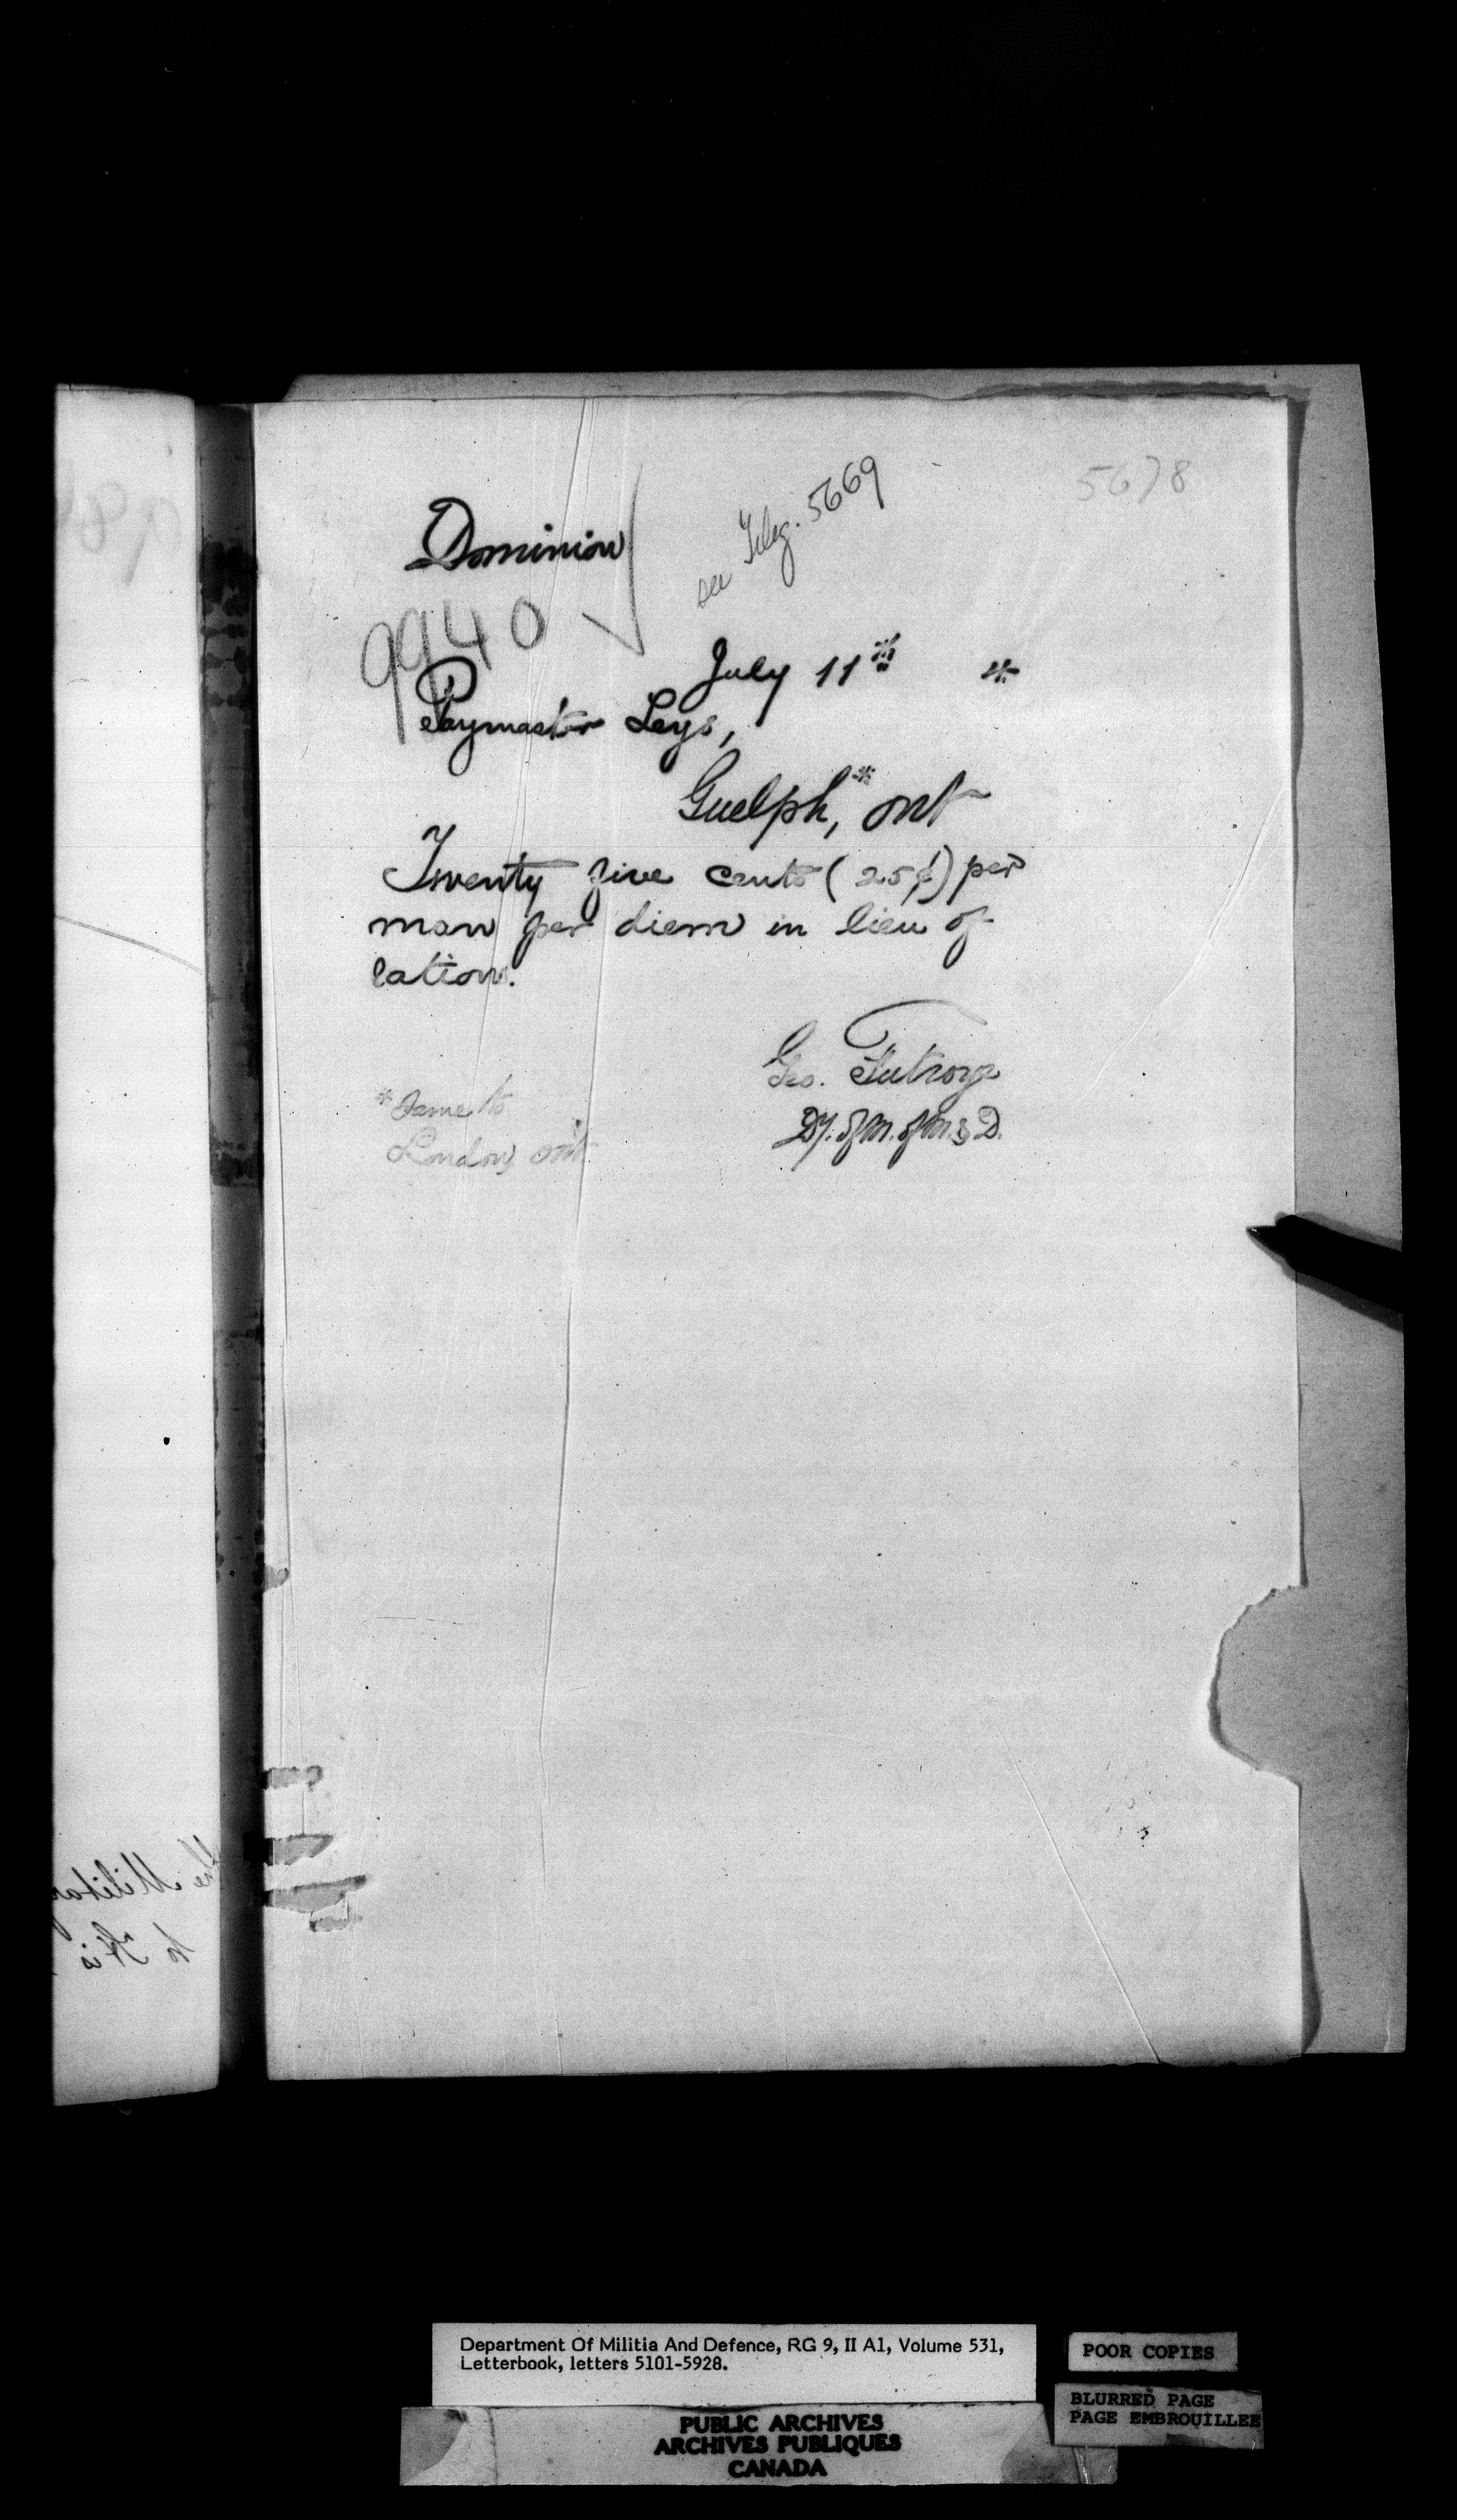 5678
see Teleg. 5669
Dominion
9940
July 11th *
Paymaster Leys,
Guelph,* Ont
Twenty five cents (25¢) per
man per diem in lieu of
rations.
Geo. Futvoye
Dy. of M. of M. & D.
* Same to
London, Ont.
the Military
to His
Department Of Militia And Defence, RG 9, II A1, Volume 531,
Letterbook, letters 5101-5928.
POOR COPIES
BLURRED PAGE
PAGE EMBROUILLEE
PUBLIC ARCHIVES
ARCHIVES PUBLIQUES
CANADA